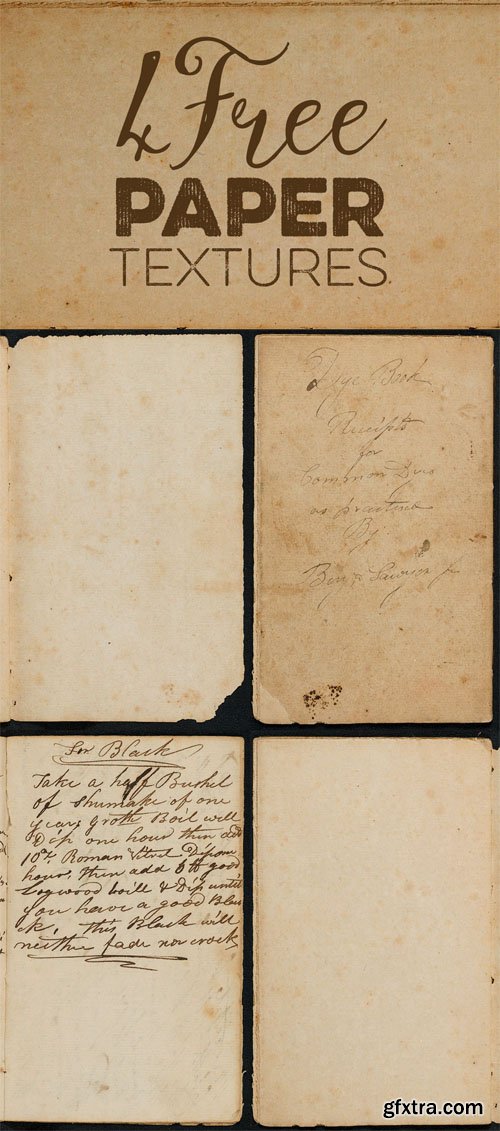 4 Free
PAPER
TEXTURES
Dye Book
Receipts
for
Common Dyes
as practised
By
Benj Sawyer Jr
For Black
Take a half Bushel
of Shumake of one
years groth Boil will
Dip one hour then add
10oz Roman Vitrol Dip one
hour, then add 6 lb good
Logwood boill & Dip until
you have a good Blac
ck, this Black will
neither fade nor crock
gfxtra.com